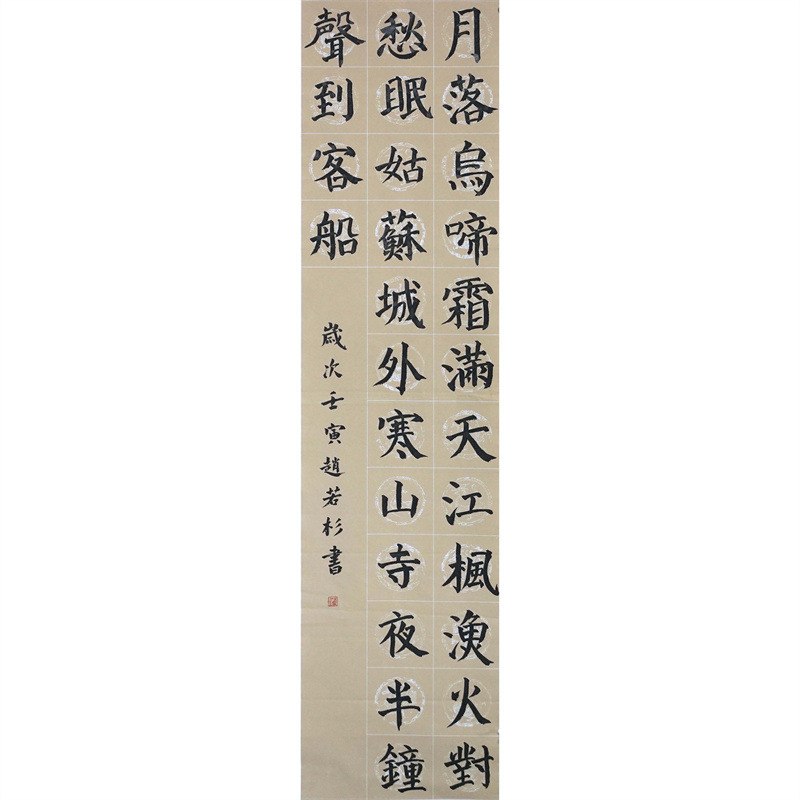 月落烏啼霜滿天江楓漁火對
愁眠姑蘇城外寒山寺夜半鐘
聲到客船
歲次壬寅趙若杉書